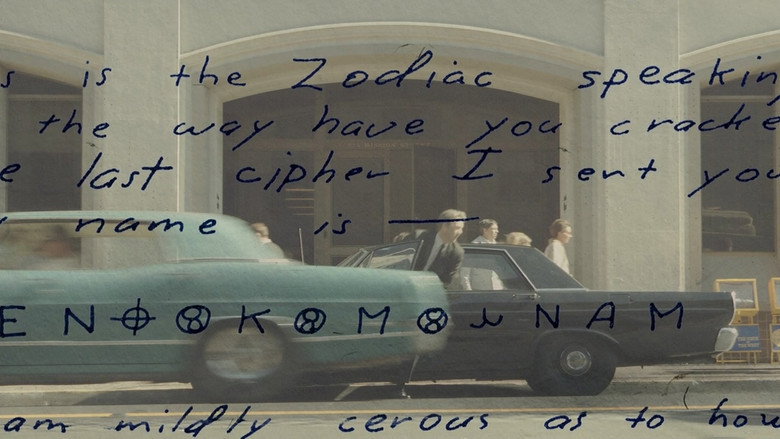 s is the Zodiac speakin
the way have you cracke
e last cipher I sent you
name is ——
E N ⌖ ⊗ K ⊗ M ⊗ ⅄ N A M
am mildly cerous as to how